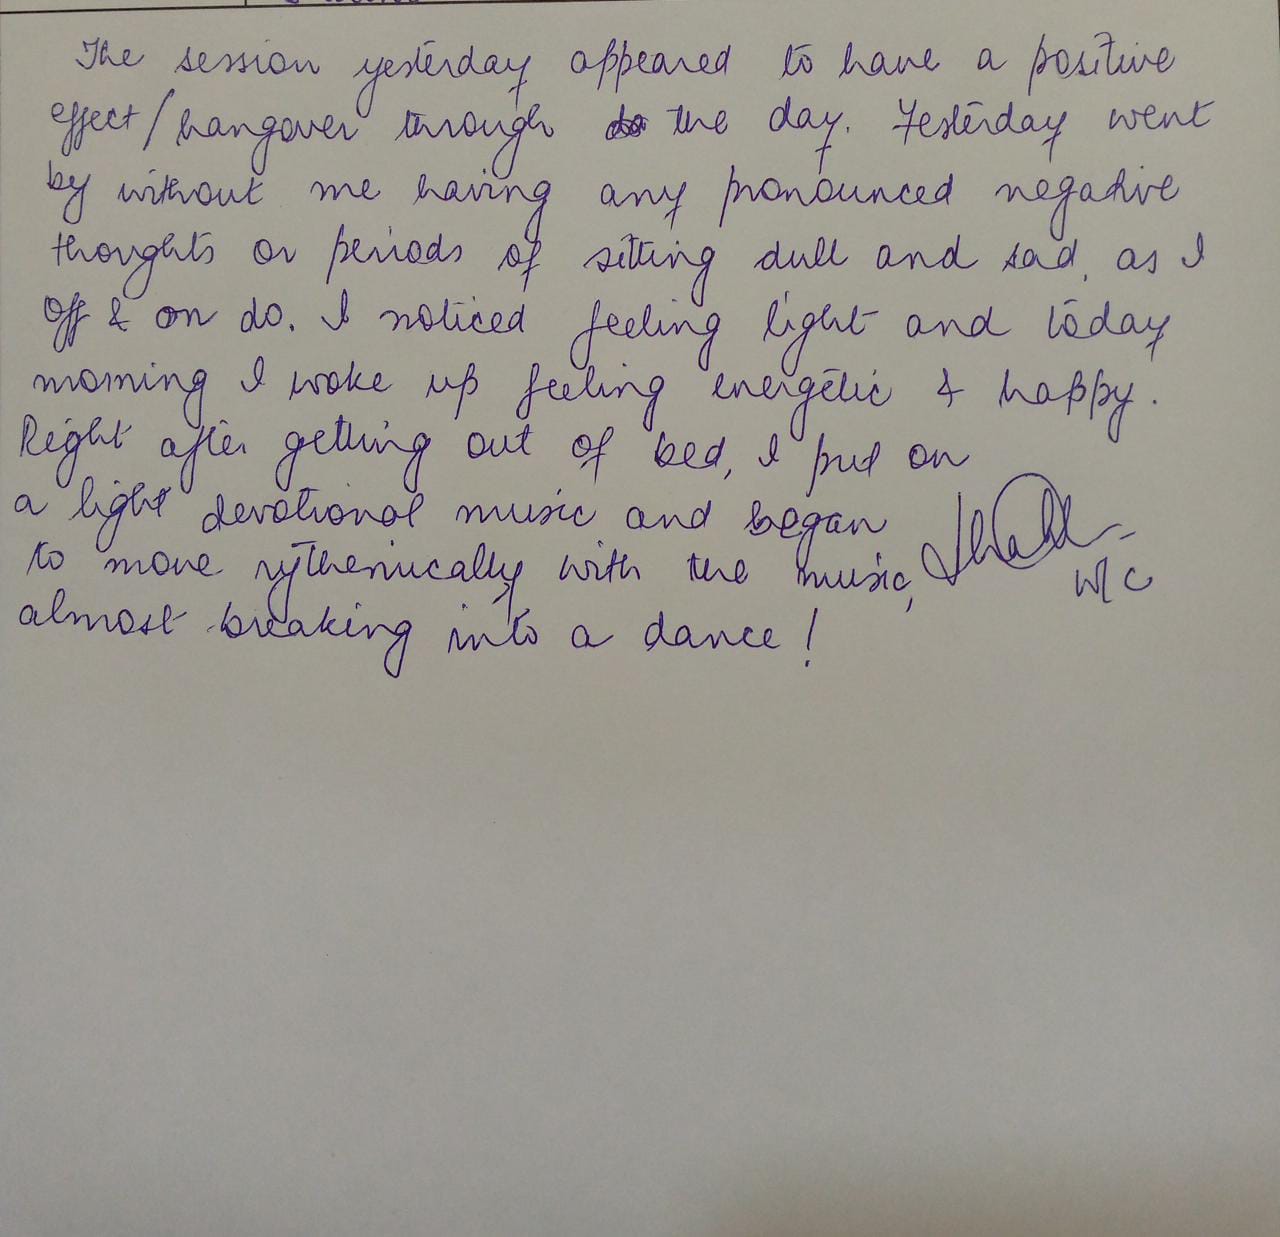 The session yesterday appeared to have a positive
effect/hangover through the day. Yesterday went
by without me having any pronounced negative
thoughts or periods of sitting dull and sad, as I
off & on do. I noticed feeling light and today
morning I woke up feeling energetic & happy.
Right after getting out of bed, I put on
a light devotional music and began
to move rythemically with the music,
W/C
almost breaking into a dance!